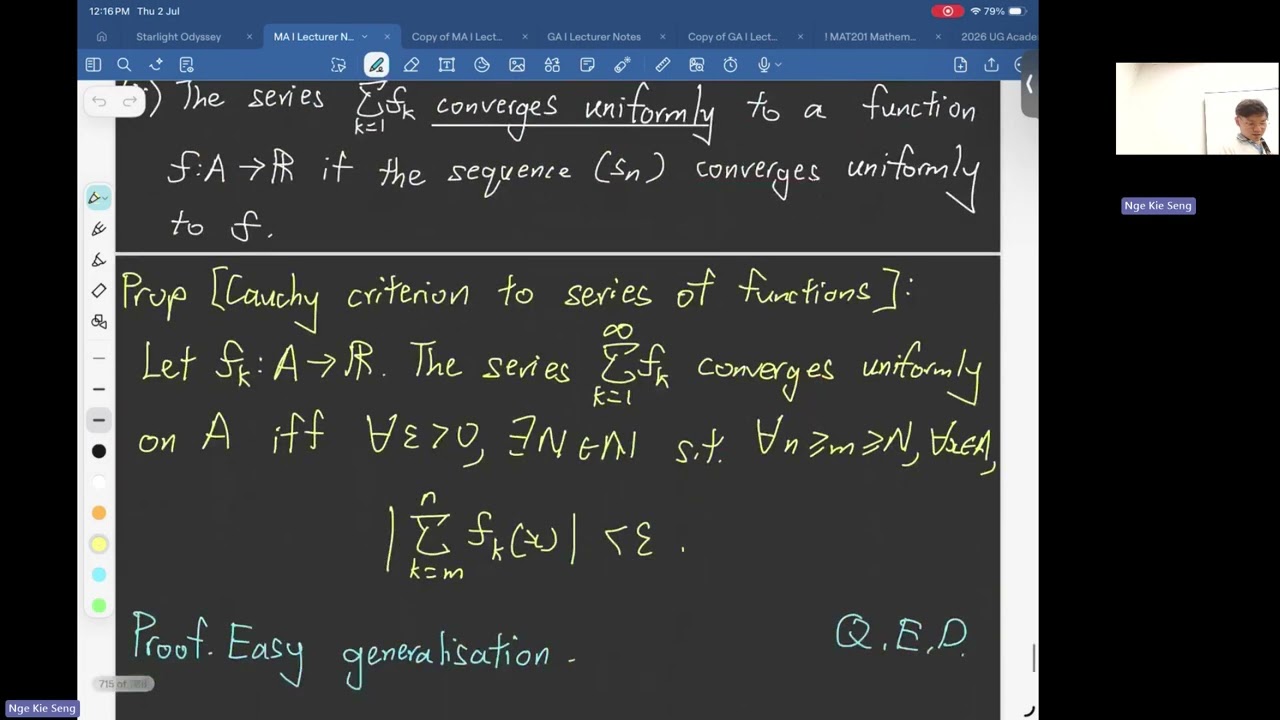 12:16 PM Thu 2 Jul
79%
Starlight Odyssey × MA I Lecturer N... × Copy of MA I Lect... × GA I Lecturer Notes × Copy of GA I Lect... × ! MAT201 Mathem... × 2026 UG Acade
The series ∑_{k=1} f_k converges uniformly to a function
f: A → ℝ if the sequence (s_n) converges uniformly
to f.
Prop [Cauchy criterion to series of functions]:
Let f_k: A → ℝ. The series ∑_{k=1}^{∞} f_k converges uniformly
on A iff ∀ε > 0, ∃N ∈ ℕ s.t. ∀n ≥ m ≥ N, ∀x∈A,
|∑_{k=m}^{n} f_k(x)| < ε.
Proof. Easy generalisation. Q.E.D.
715 of
Nge Kie Seng
Nge Kie Seng